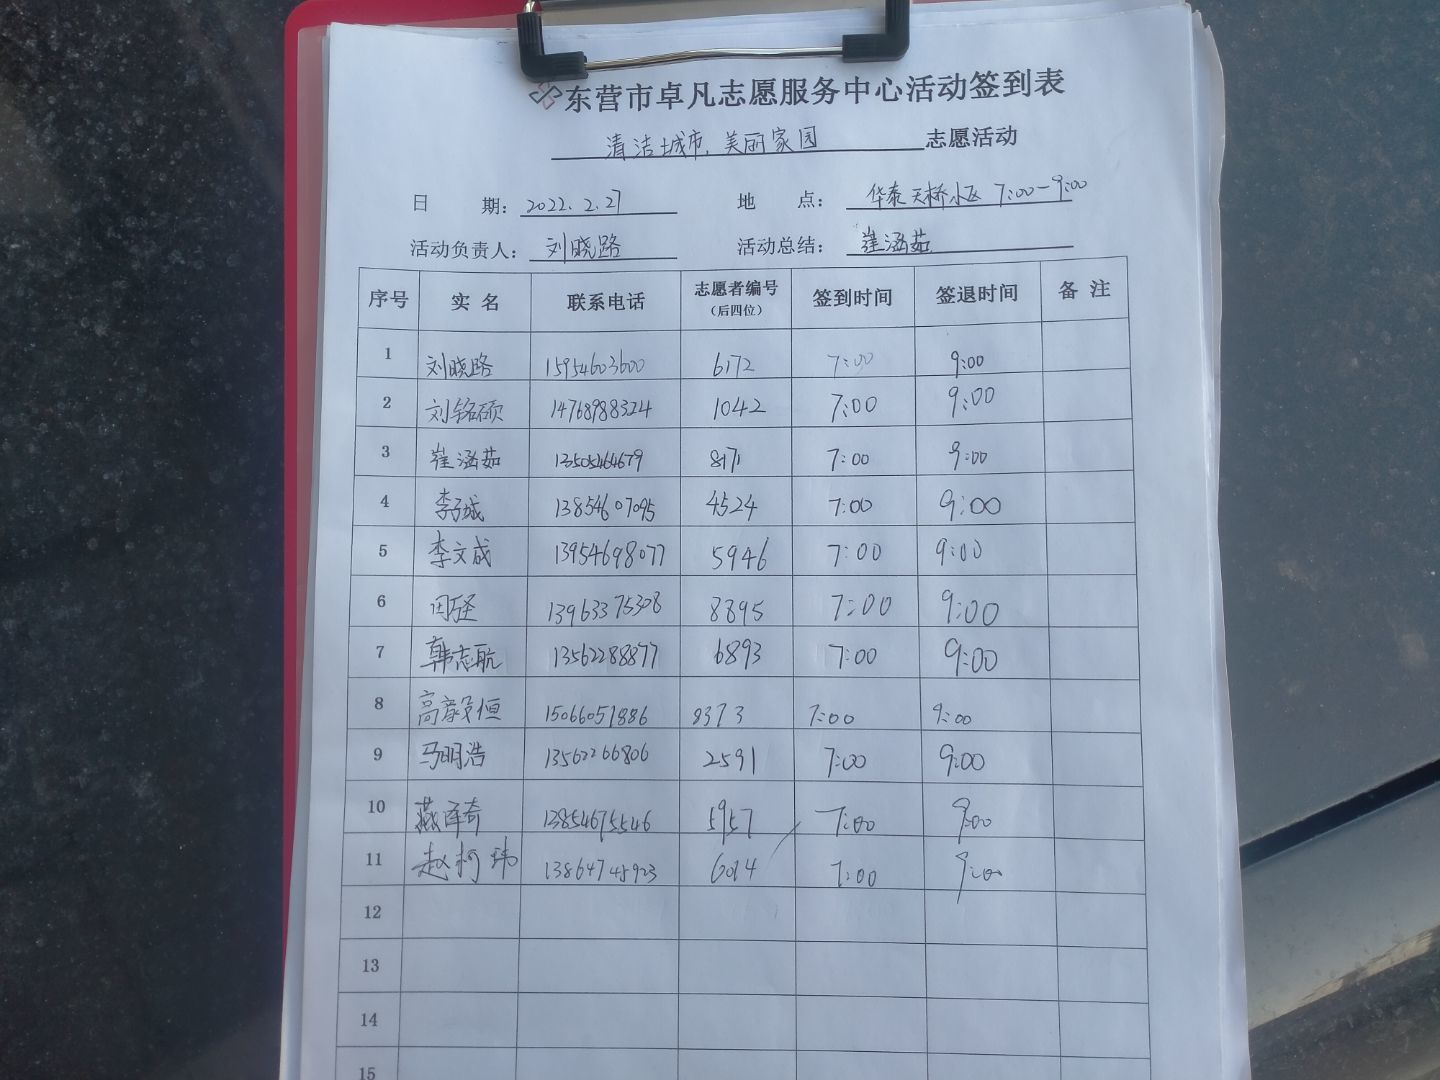 东营市卓凡志愿服务中心活动签到表
清洁城市,美丽家园 志愿活动
日 期: 2022.2.27 地 点: 华泰天桥小区 7:00-9:00
活动负责人: 刘晓路 活动总结: 崔涵茹
序号 实名 联系电话 志愿者编号(后四位) 签到时间 签退时间 备注
1 刘晓路 15954603600 6172 7:00 9:00
2 刘铭硕 14768988324 1042 7:00 9:00
3 崔涵茹 13505464679 8171 7:00 9:00
4 李子城 13854607095 4524 7:00 9:00
5 李文成 13954698077 5946 7:00 9:00
6 13963375308 8895 7:00 9:00
7 韩志航 13562288877 6893 7:00 9:00
8 高毅恒 15066051886 8373 7:00 9:00
9 马明浩 13562266806 2591 7:00 9:00
10 燕泽奇 13854675546 5957 7:00 9:00
11 赵柯玮 13864745923 6014 7:00 9:00
12
13
14
15